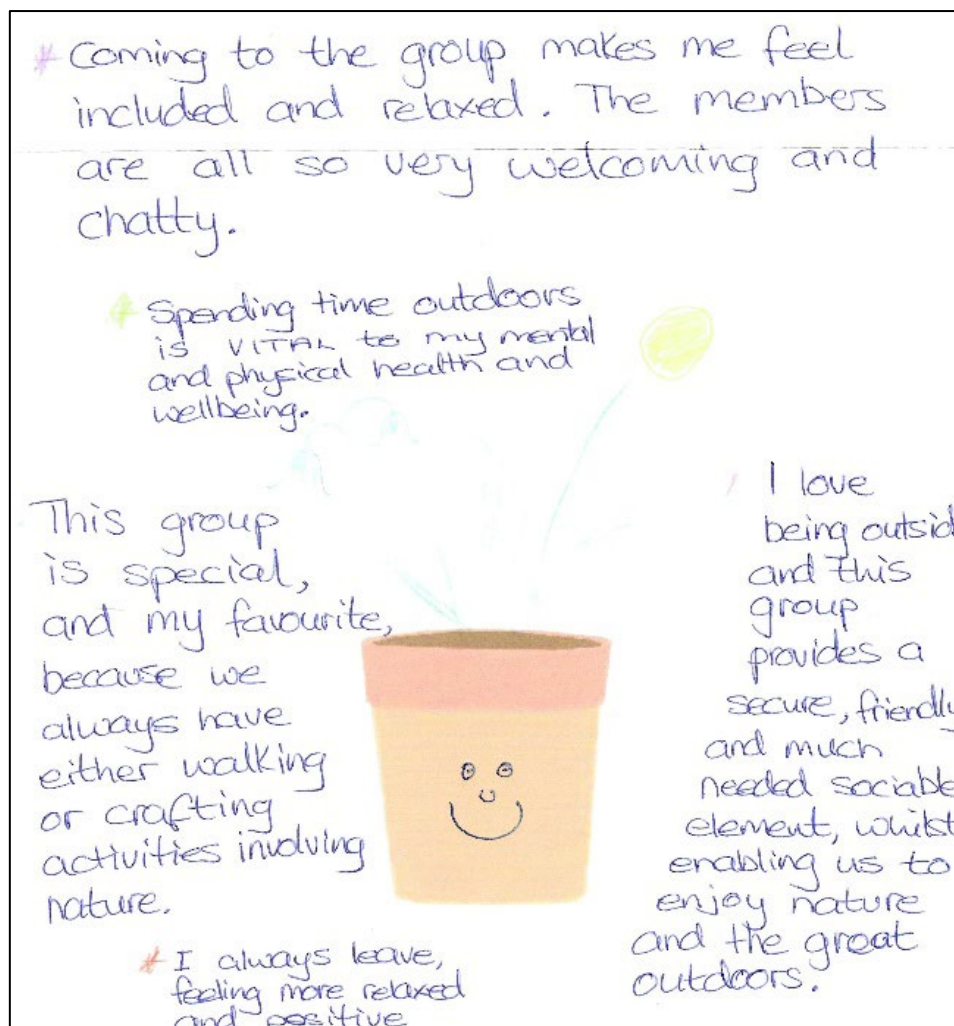 * Coming to the group makes me feel
included and relaxed. The members
are all so very welcoming and
chatty.
* Spending time outdoors
is VITAL to my mental
and physical health and
wellbeing.
This group
is special,
and my favourite,
because we
always have
either walking
or crafting
activities involving
nature.
I love
being outsid
and this
group
provides a
secure, friendly
and much
needed sociable
element, whilst
enabling us to
enjoy nature
and the great
outdoors.
* I always leave,
feeling more relaxed
and positive